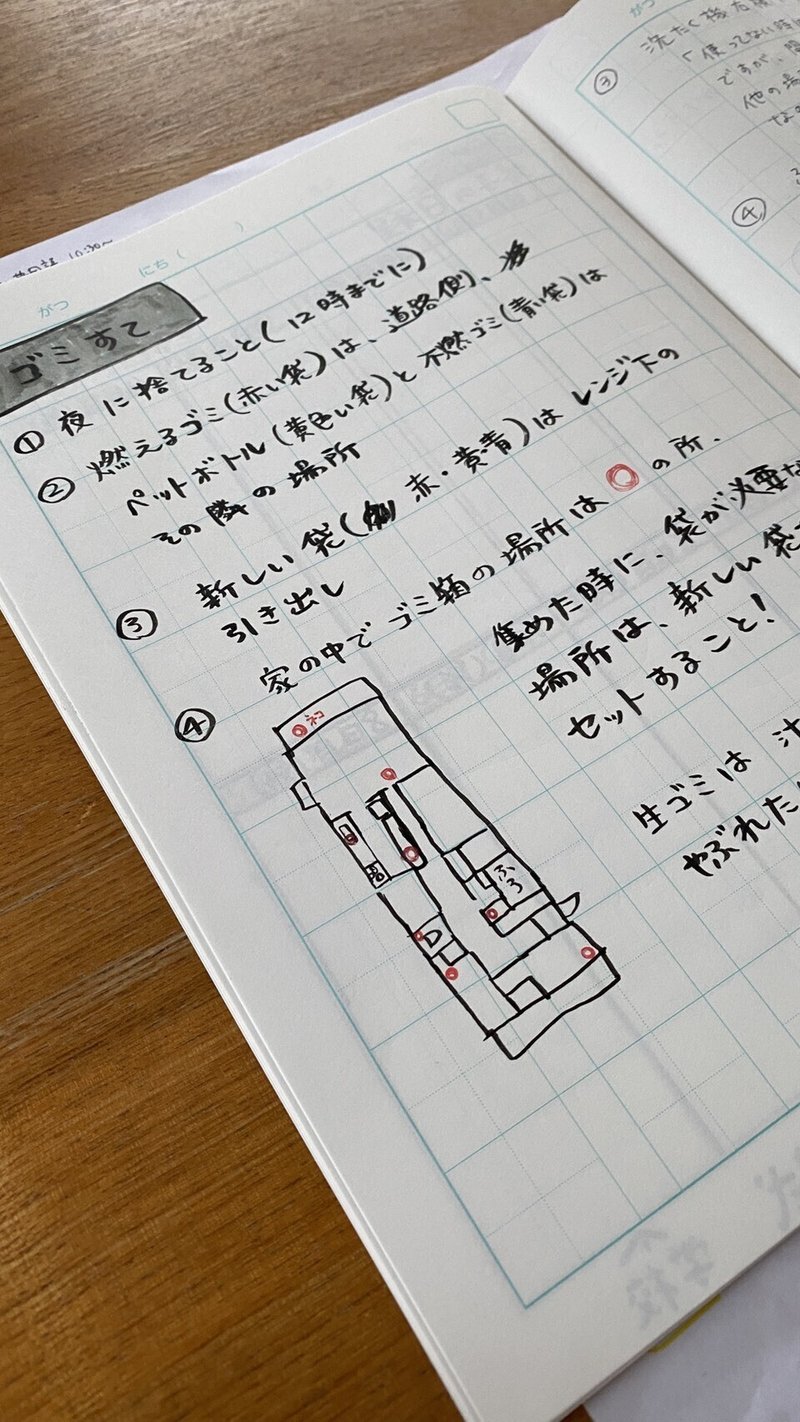 がつ　にち（　　）
ゴミすて
① 夜に捨てること(12時までに)
② 燃えるゴミ(赤い袋)は、道路側、
ペットボトル(黄色い袋)と不燃ゴミ(青い袋)は
その隣の場所
③ 新しい袋(赤・黄・青)はレンジ下の
引き出し
④ 家の中でゴミ箱の場所は◎の所、
集めた時に、袋が必要な
場所は、新しい袋
セットすること!
生ゴミは
やぶれた
ネコ
ふろ
がつ
③ 洗たく機
「使ってない時
ですが、
他の場
④